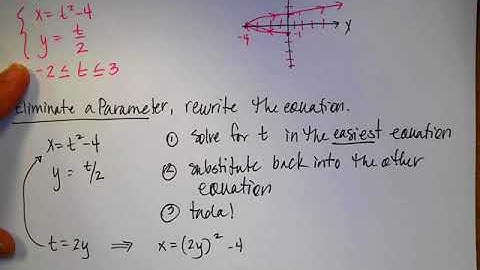 x = t² - 4
y = t/2
-2 ≤ t ≤ 3
-4
-1
x
Eliminate a Parameter, rewrite the equation.
x = t² - 4
y = t/2
t = 2y ⇒ x = (2y)² - 4
① solve for t in the easiest equation
② substitute back into the other
equation
③ tada!